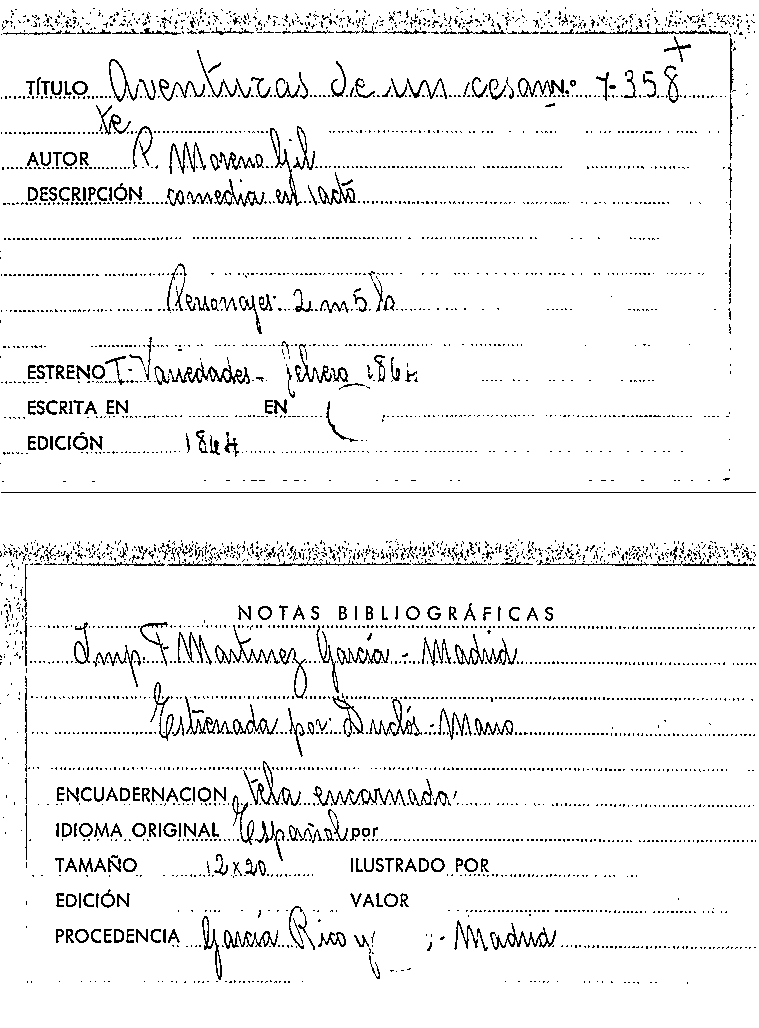 TÍTULO Aventuras de un cesan N.º 7-358
te
AUTOR R. Moreno Gil
DESCRIPCIÓN comedia en 1 acto
Personajes: 2 m 5 h
ESTRENO T. Variedades - febrero 1864
ESCRITA EN EN
EDICIÓN 1864
NOTAS BIBLIOGRÁFICAS
Imp. F. Martinez García - Madrid
Estrenada por: Duclós - Mario
ENCUADERNACION tela encarnada
IDIOMA ORIGINAL Español por
TAMAÑO 12x20 ILUSTRADO POR
EDICIÓN VALOR
PROCEDENCIA García Rico y - Madrid